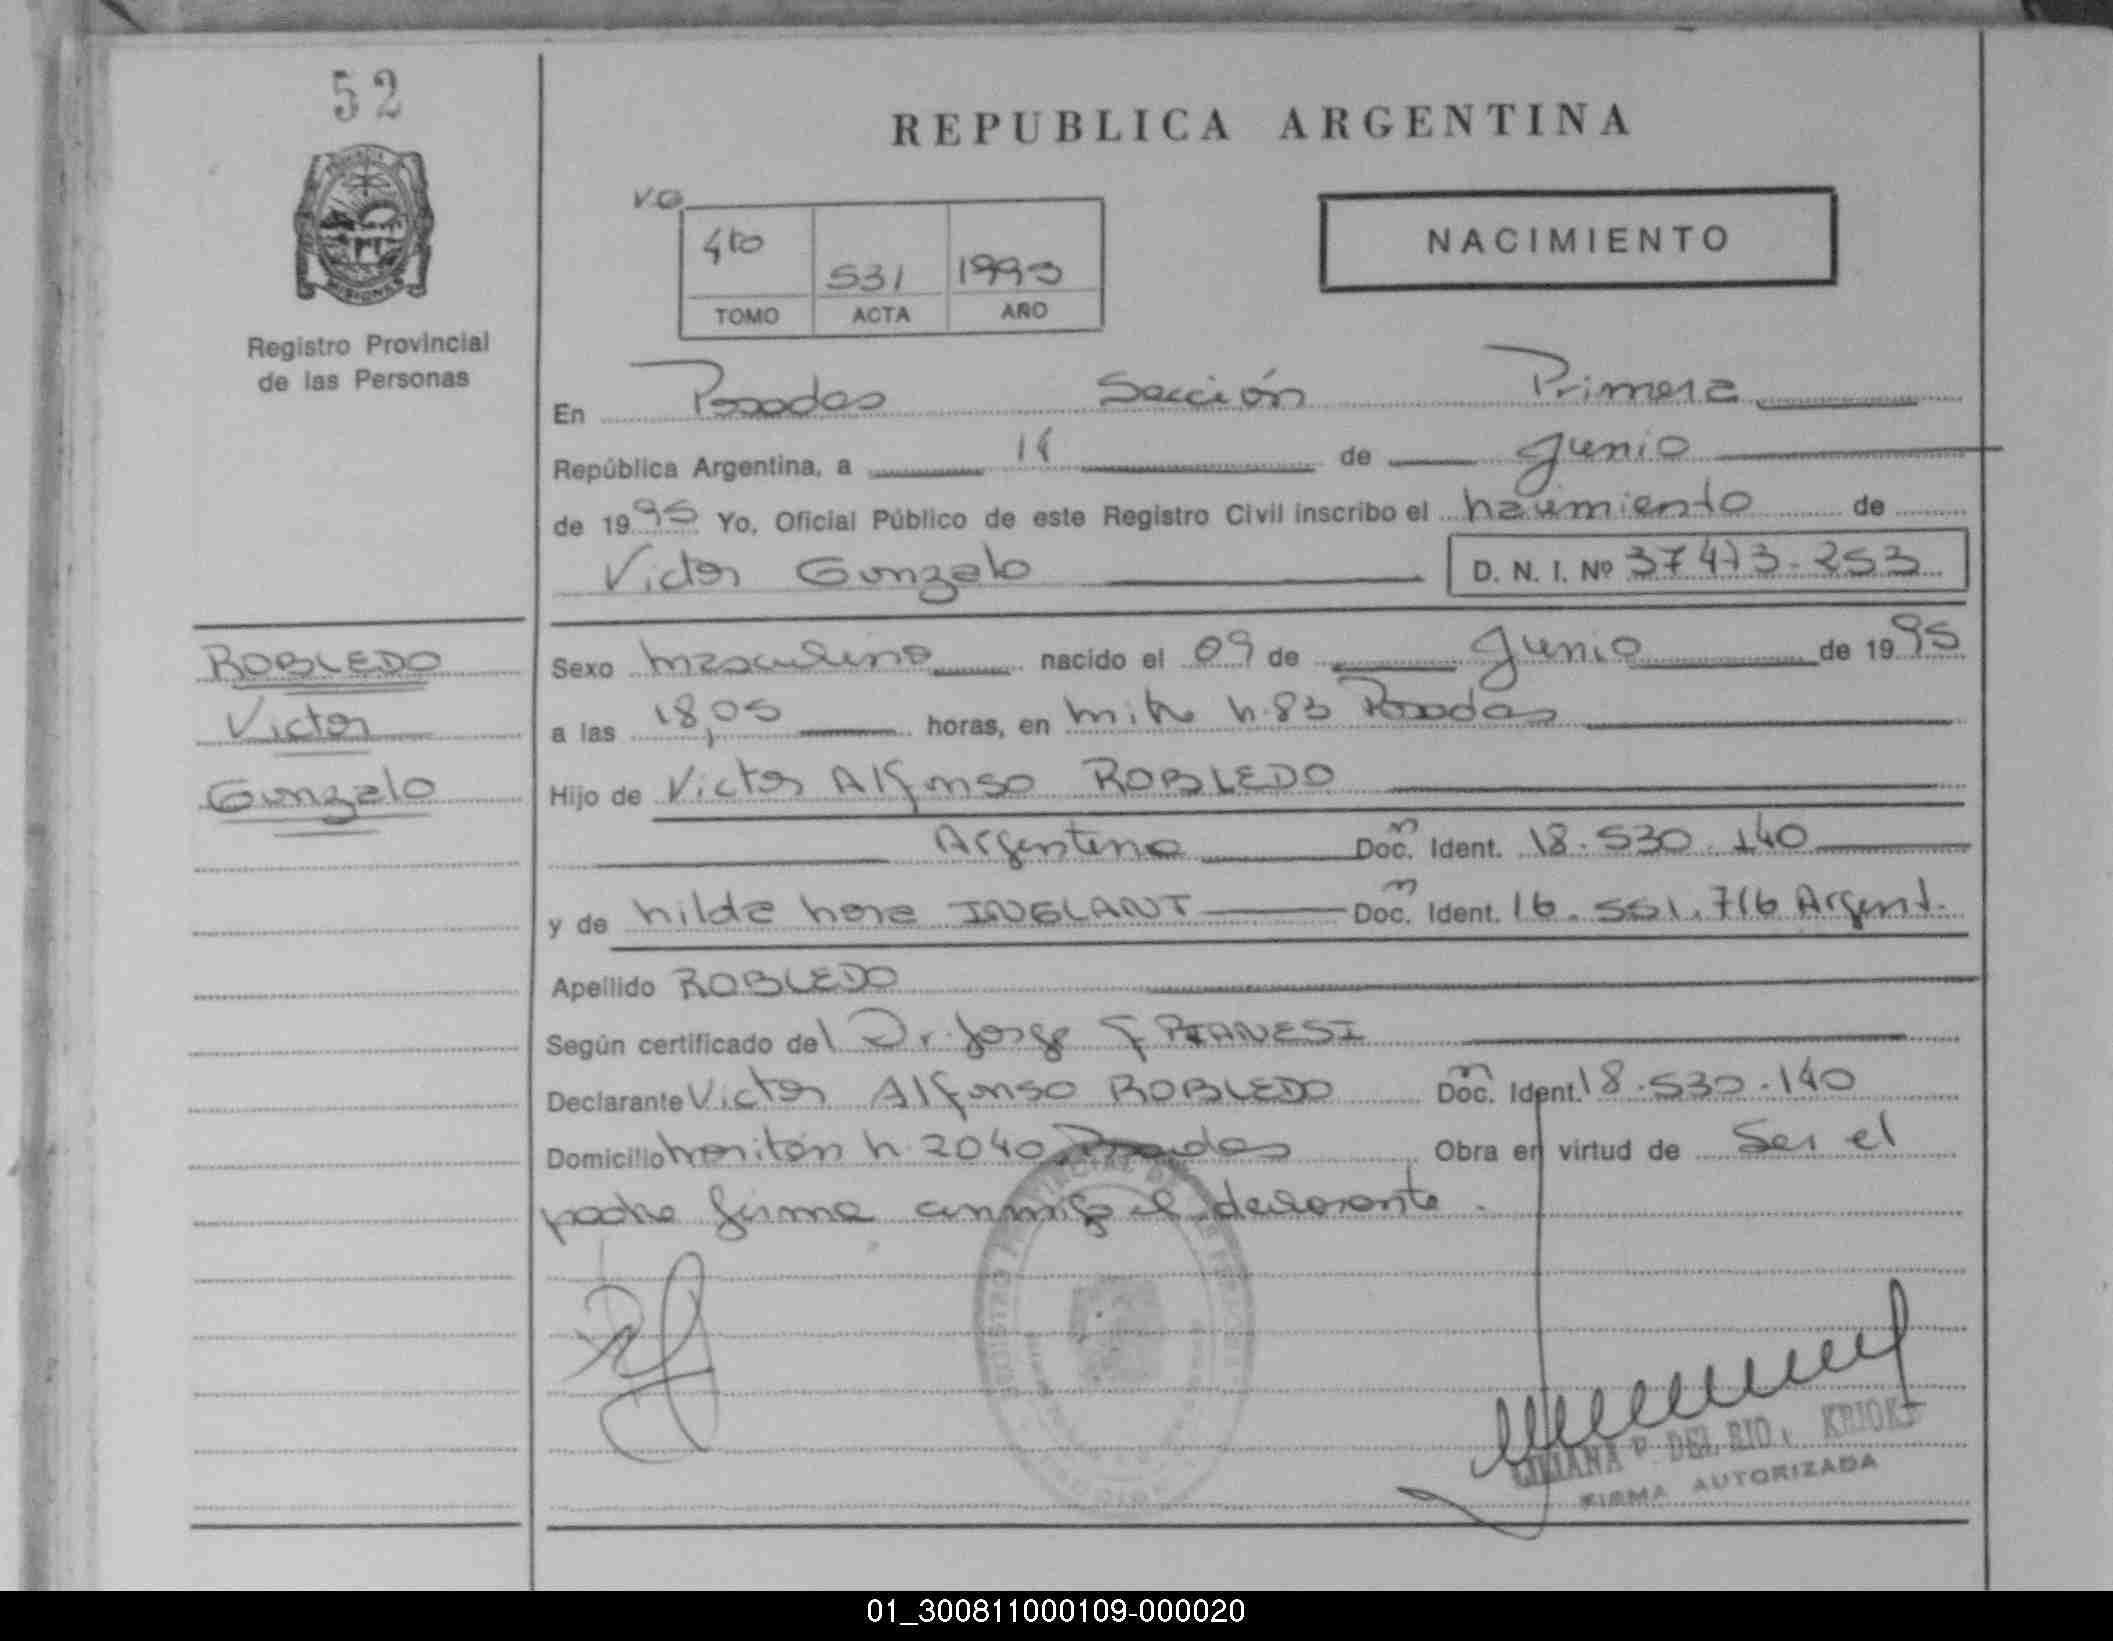 52
REPUBLICA ARGENTINA
MISIONES
Registro Provincial
de las Personas
4to 531 1995
TOMO ACTA AÑO
NACIMIENTO
En Posadas Sección Primera
República Argentina, a 14 de Junio
de 1995 Yo, Oficial Público de este Registro Civil inscribo el nacimiento de
Victor Gonzalo D. N. I. Nº 37473-253
ROBLEDO
Victor
Gonzalo
Sexo masculino nacido el 09 de Junio de 1995
a las 18,05 horas, en Posadas
Hijo de Victor Alfonso ROBLEDO
Argentino Doc. Ident. 18.530.140
y de nilda nora INGLANT Doc. Ident. 16.551.716 Argent.
Apellido ROBLEDO
Según certificado del Dr. Jorge F PIANESI
Declarante Victor Alfonso ROBLEDO Doc. Ident. 18.530.140
Domicilio 2040 Posadas Obra en virtud de Ser el
padre firma conmigo el declarante.
P. DEL RIO
FIRMA AUTORIZADA
01_300811000109-000020